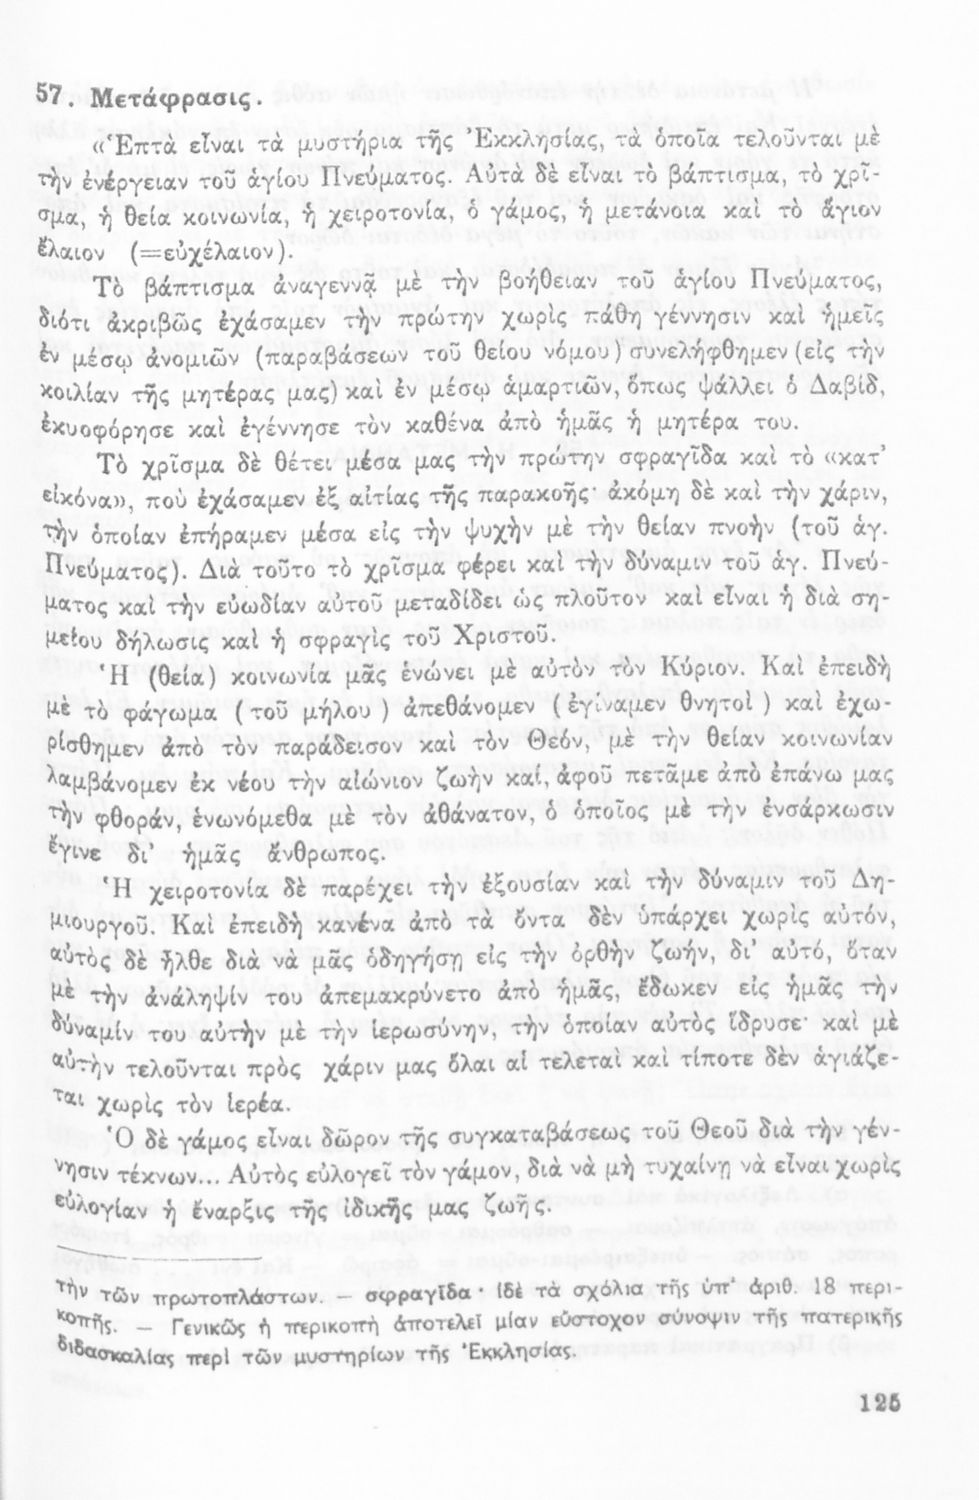 57. Μετάφρασις.
«Ἑπτὰ εἶναι τὰ μυστήρια τῆς Ἐκκλησίας, τὰ ὁποῖα τελοῦνται μὲ
τὴν ἐνέργειαν τοῦ ἁγίου Πνεύματος. Αὐτὰ δὲ εἶναι τὸ βάπτισμα, τὸ χρῖ-
σμα, ἡ θεία κοινωνία, ἡ χειροτονία, ὁ γάμος, ἡ μετάνοια καὶ τὸ ἅγιον
ἔλαιον (=εὐχέλαιον).
Τὸ βάπτισμα ἀναγεννᾷ μὲ τὴν βοήθειαν τοῦ ἁγίου Πνεύματος,
διότι ἀκριβῶς ἐχάσαμεν τὴν πρώτην χωρὶς πάθη γέννησιν καὶ ἡμεῖς
ἐν μέσῳ ἀνομιῶν (παραβάσεων τοῦ θείου νόμου) συνελήφθημεν (εἰς τὴν
κοιλίαν τῆς μητέρας μας) καὶ ἐν μέσῳ ἁμαρτιῶν, ὅπως ψάλλει ὁ Δαβίδ,
ἐκυοφόρησε καὶ ἐγέννησε τὸν καθένα ἀπὸ ἡμᾶς ἡ μητέρα του.
Τὸ χρῖσμα δὲ θέτει μέσα μας τὴν πρώτην σφραγῖδα καὶ τὸ «κατ’
εἰκόνα», ποὺ ἐχάσαμεν ἐξ αἰτίας τῆς παρακοῆς· ἀκόμη δὲ καὶ τὴν χάριν,
τὴν ὁποίαν ἐπήραμεν μέσα εἰς τὴν ψυχὴν μὲ τὴν θείαν πνοὴν (τοῦ ἁγ.
Πνεύματος). Διὰ τοῦτο τὸ χρῖσμα φέρει καὶ τὴν δύναμιν τοῦ ἁγ. Πνεύ-
ματος καὶ τὴν εὐωδίαν αὐτοῦ μεταδίδει ὡς πλοῦτον καὶ εἶναι ἡ διὰ ση-
μείου δήλωσις καὶ ἡ σφραγὶς τοῦ Χριστοῦ.
Ἡ (θεία) κοινωνία μᾶς ἑνώνει μὲ αὐτὸν τὸν Κύριον. Καὶ ἐπειδὴ
μὲ τὸ φάγωμα (τοῦ μήλου) ἀπεθάνομεν (ἐγίναμεν θνητοὶ) καὶ ἐχω-
ρίσθημεν ἀπὸ τὸν παράδεισον καὶ τὸν Θεόν, μὲ τὴν θείαν κοινωνίαν
λαμβάνομεν ἐκ νέου τὴν αἰώνιον ζωὴν καί, ἀφοῦ πετᾶμε ἀπὸ ἐπάνω μας
τὴν φθοράν, ἑνωνόμεθα μὲ τὸν ἀθάνατον, ὁ ὁποῖος μὲ τὴν ἐνσάρκωσιν
ἔγινε δι’ ἡμᾶς ἄνθρωπος.
Ἡ χειροτονία δὲ παρέχει τὴν ἐξουσίαν καὶ τὴν δύναμιν τοῦ Δη-
μιουργοῦ. Καὶ ἐπειδὴ κανένα ἀπὸ τὰ ὄντα δὲν ὑπάρχει χωρὶς αὐτόν,
αὐτὸς δὲ ἦλθε διὰ νὰ μᾶς ὁδηγήσῃ εἰς τὴν ὀρθὴν ζωήν, δι’ αὐτό, ὅταν
μὲ τὴν ἀνάληψίν του ἀπεμακρύνετο ἀπὸ ἡμᾶς, ἔδωκεν εἰς ἡμᾶς τὴν
δύναμίν του αὐτὴν μὲ τὴν ἱερωσύνην, τὴν ὁποίαν αὐτὸς ἵδρυσε· καὶ μὲ
αὐτὴν τελοῦνται πρὸς χάριν μας ὅλαι αἱ τελεταὶ καὶ τίποτε δὲν ἁγιάζε-
ται χωρὶς τὸν ἱερέα.
Ὁ δὲ γάμος εἶναι δῶρον τῆς συγκαταβάσεως τοῦ Θεοῦ διὰ τὴν γέν-
νησιν τέκνων... Αὐτὸς εὐλογεῖ τὸν γάμον, διὰ νὰ μὴ τυχαίνῃ νὰ εἶναι χωρὶς
εὐλογίαν ἡ ἔναρξις τῆς ἰδικῆς μας ζωῆς.
τὴν τῶν πρωτοπλάστων. — σφραγῖδα· ἰδὲ τὰ σχόλια τῆς ὑπ’ ἀριθ. 18 περι-
κοπῆς. — Γενικῶς ἡ περικοπὴ ἀποτελεῖ μίαν εὔστοχον σύνοψιν τῆς πατερικῆς
διδασκαλίας περὶ τῶν μυστηρίων τῆς Ἐκκλησίας.
125